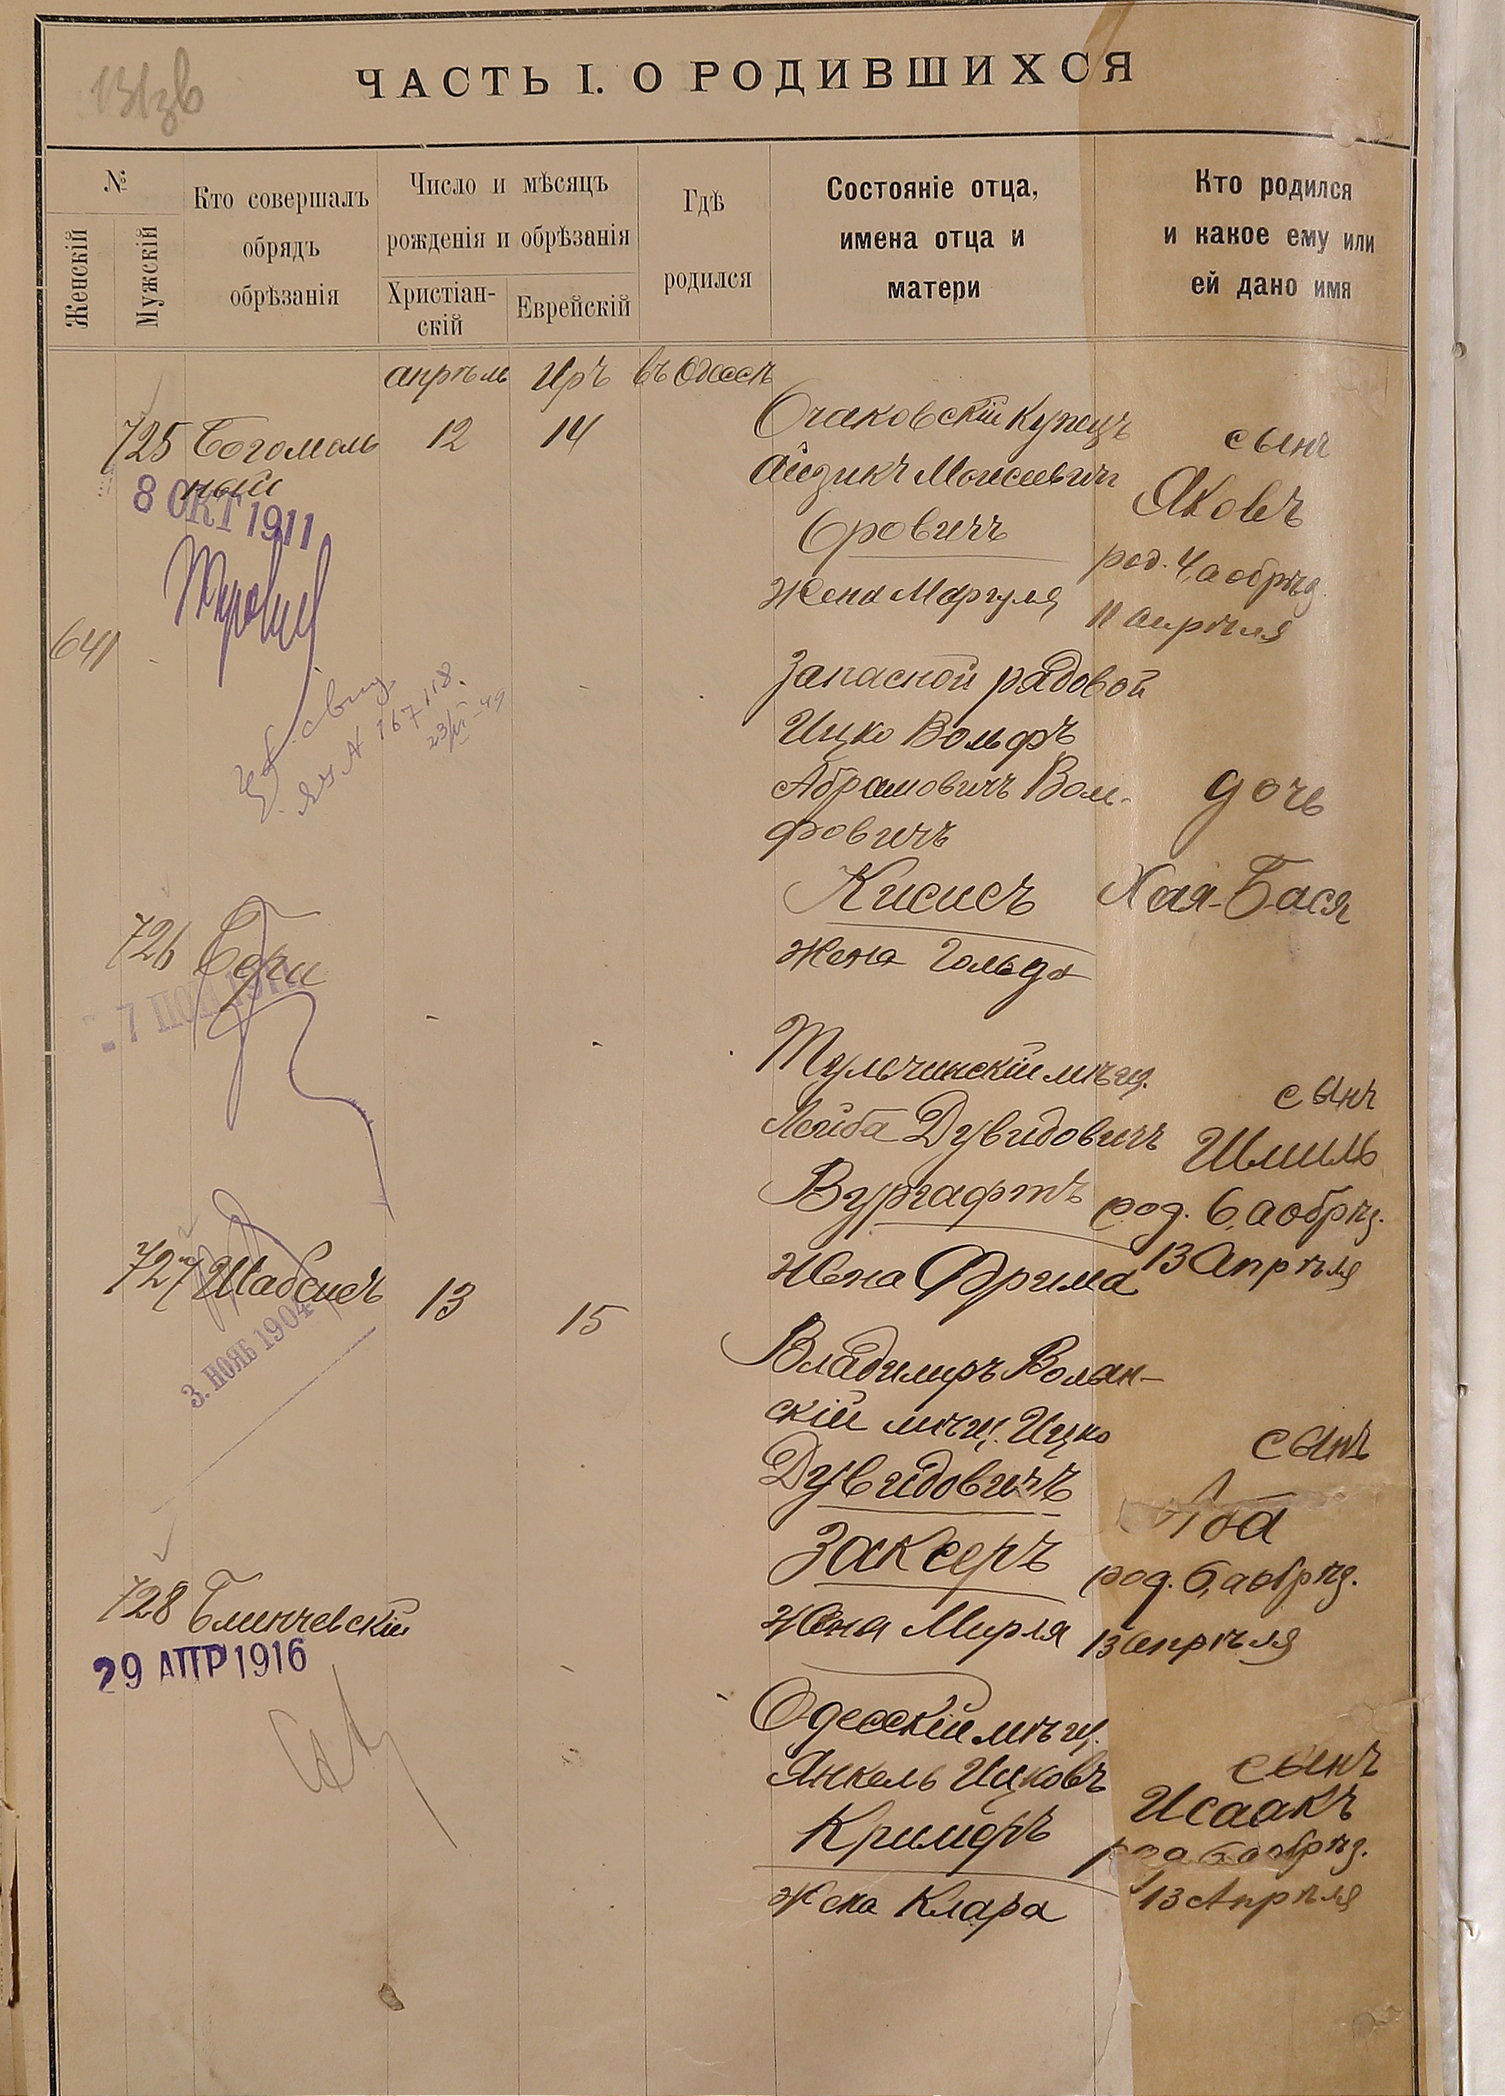 ЧАСТЬ I. О РОДИВШИХСЯ
№
Женскій
Мужскій
Кто совершалъ
обрядъ
обрѣзанія
Число и мѣсяцъ
рожденія и обрѣзанія
Христіан-
скій
Еврейскій
Гдѣ
родился
Состояніе отца,
имена отца и
матери
Кто родился
и какое ему или
ей дано имя
апрѣль Иръ въ Одессѣ
725 Богомоль
ный
12 14
Очаковскій купецъ
Айзикъ Моисеевичъ
Оровичъ
жена Маргуля
сынъ
Яковъ
род. 4, а обрѣз.
11 апрѣля
8 ОКТ 1911
641
Запасной рядовой
Ицко Вольфъ
Абрамовичъ Воль-
фовичъ
Кисисъ
жена Гольда
дочь
Хая-Бася
167118.
726
Тульчинскій мѣщ.
Лейба Дувидовичъ
Вургафтъ
жена Фрима
сынъ
Шмиль
род. 6, а обрѣз.
13 Апрѣля
727 Шабсисъ
13 15
3. НОЯБ 1904
Владимиръ Волын-
скій мѣщ. Ицко
Дувидовичъ
Заксеръ
жена Мирля
сынъ
Аба
род. 6, а обрѣз.
13 апрѣля
728 Блинчевскій
29 АПР 1916
Одесскій мѣщ.
Янкель Ицковъ
Кримеръ
жена Клара
сынъ
Исаакъ
род 6 а обрѣз.
13 Апрѣля